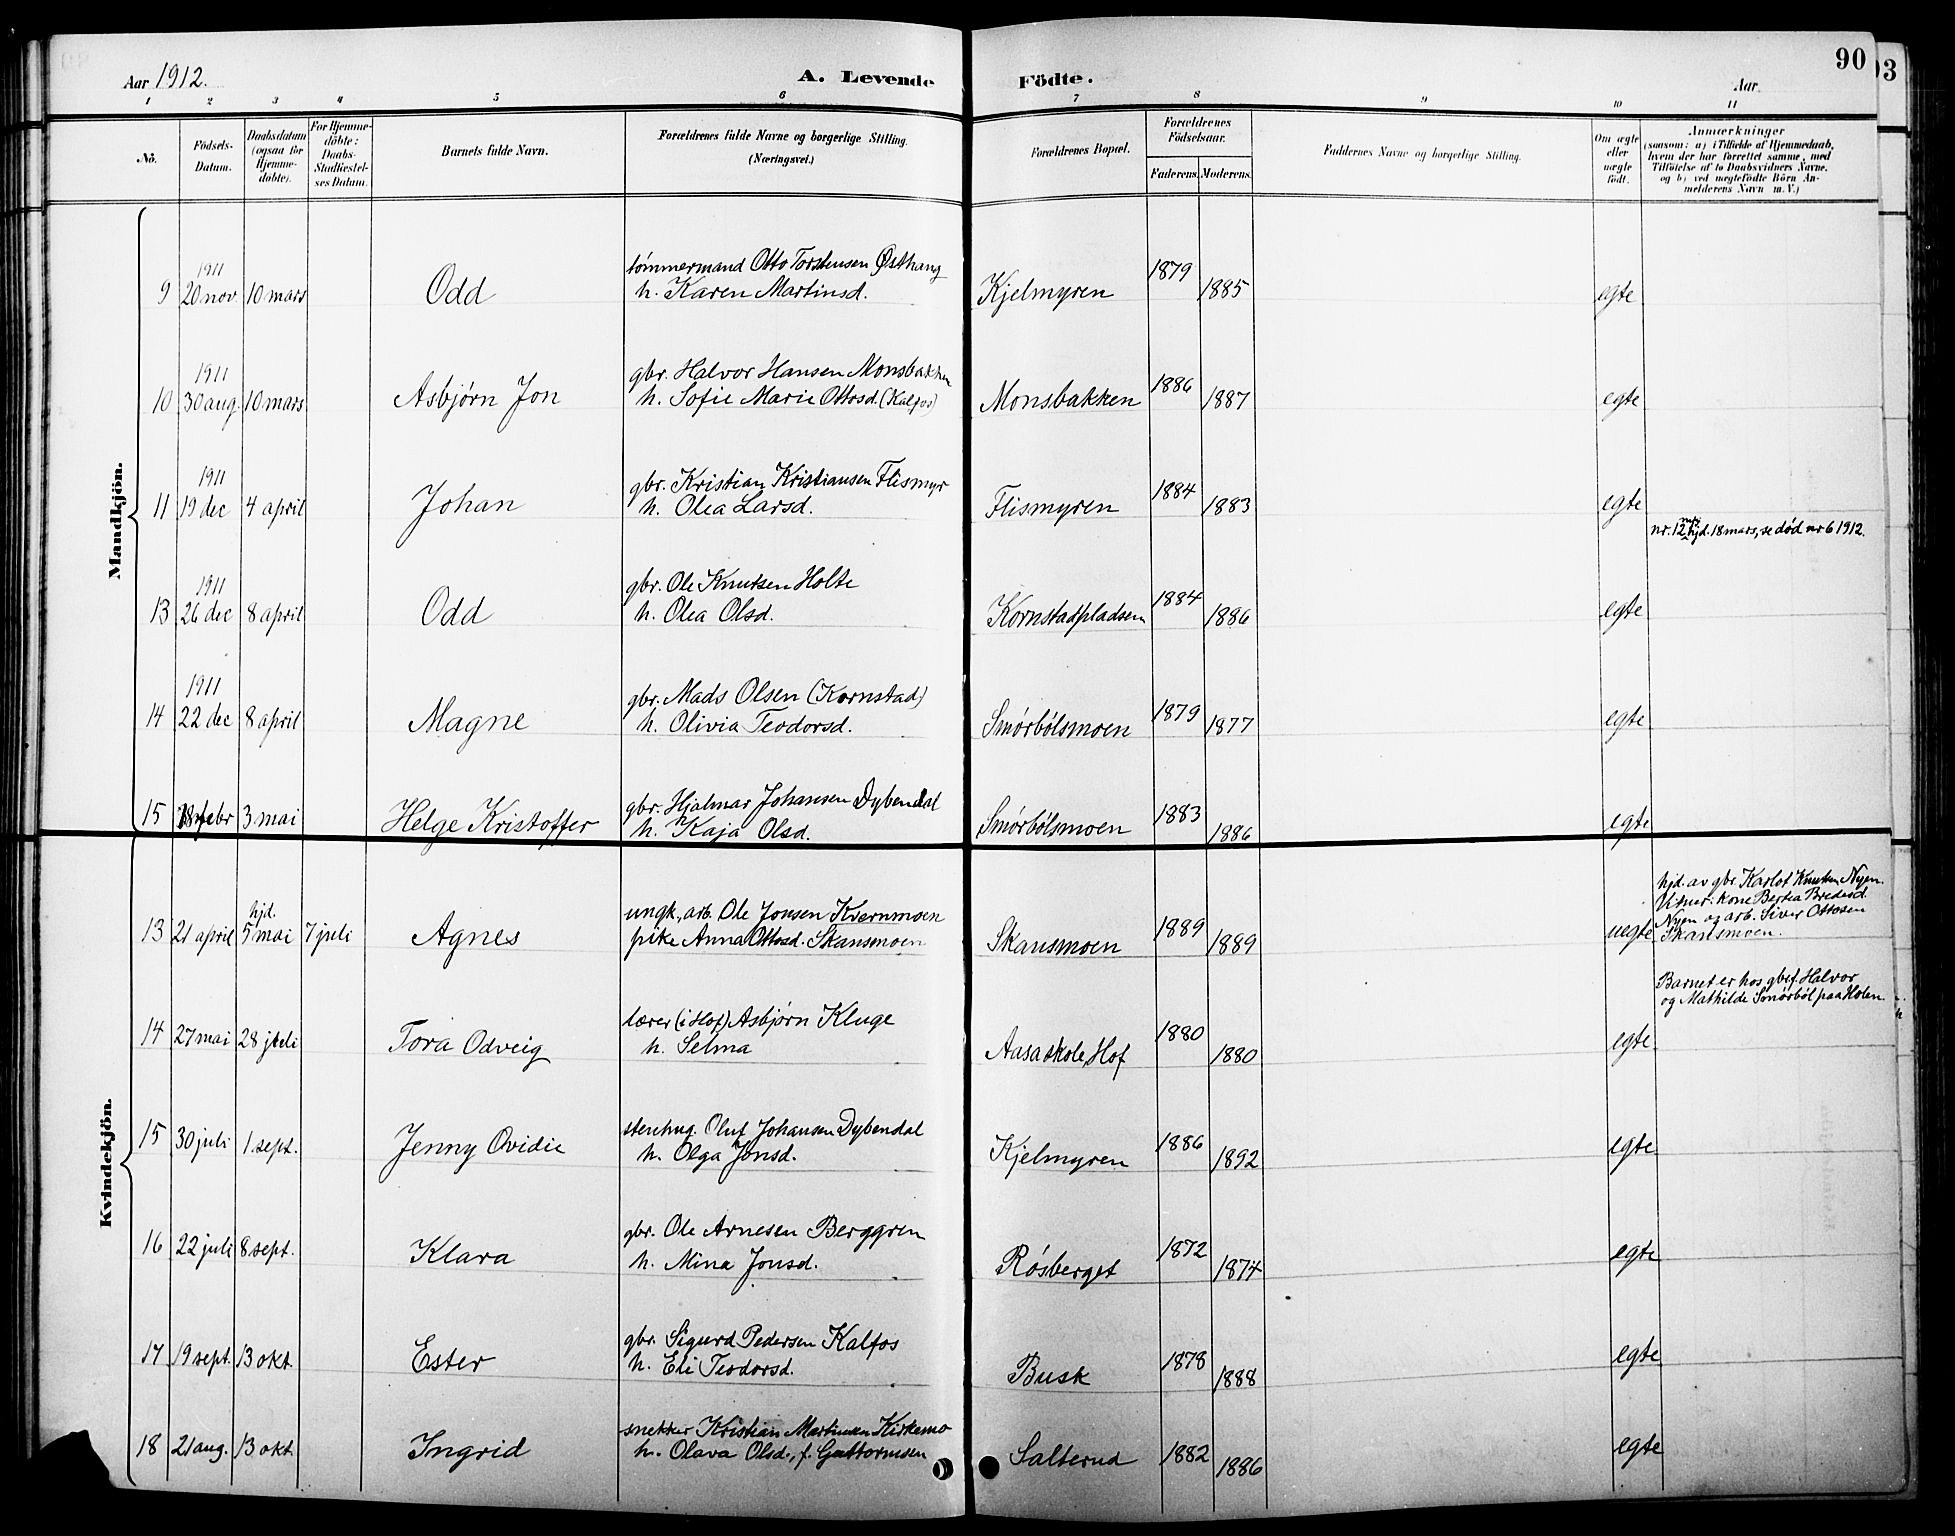 Aar 1912.
A. Levende Födte.
Aar
90
1 2 3 4 5 6 7 8 9 10 11
No.
Födsels-
Datum.
Daabsdatum
(ogsaa for
Hjemme-
döbte).
For Hjemme-
döbte:
Daabs-
Stadfæstel-
ses Datum.
Barnets fulde Navn.
Forældrenes fulde Navne og borgerlige Stilling.
(Næringsvei.)
Forældrenes Bopæl.
Forældrenes
Födselsaar.
Faderens. Moderens.
Faddernes Navne og borgerlige Stilling.
Om ægte
eller
uægte
födt.
Anmærkninger
(saasom: a) i Tilfælde af Hjemmedaab,
hvem der har forrettet samme, med
Tilföielse af to Daabsvidners Navne,
og b) ved uægtefödte Börn An-
melderens Navn m. V.)
Mandkjön.
1911
9 20 nov. 10 mars Odd
tømmermand Otto Torstensen Østhang
h. Karen Martinsd.
Kjelmyren 1879 1885 egte
1911
10 30 aug 10 mars Asbjørn Jon
gbr. Halvor Hansen Monsbakken
h. Sofie Marie Ottosd. (Kalfos)
Monsbakken 1886 1887 egte
1911
11 19 dec 4 april Johan
gbr. Kristian Kristiansen Flismyr
h. Olea Larsd.
Flismyren 1884 1883 egte
nr. 12 hjd. 18 mars, se død nr 6 1912.
1911
13 26 dec 8 april Odd
gbr. Ole Knutsen Holte
h. Olea Olsd.
Kornstadpladsen 1884 1886 egte
1911
14 22 dec 8 april Magne
gbr. Mads Olsen (Kornstad)
h. Olivia Teodorsd.
Smørbølsmoen 1879 1877 egte
15 febr 3 mai Helge Kristoffer
gbr. Hjalmar Johansen Dybendal
h. Kaja Olsd.
Smørbølsmoen 1883 1886 egte
Kvindekjön.
hjd.
13 21 april 5 mai 7 juli Agnes
ungk., arb. Ole Jonsen Kvernmoen
pike Anna Ottosd. Skansmoen
Skansmoen 1889 1889 uegte
hjd. av gbr. Karlot Knutsen Nyen.
Vitner: kone Bertea Bredesd.
Nyen og arb. Siver Ottosen
Skansmoen.
Barnet er hos gbrf. Halvor
og Mathilde Smørbøl paa Holen.
14 27 mai 28 juli Tora Odveig
lærer (i Hof) Asbjørn Kluge
h. Selma
Aasa skole, Hof 1880 1880 egte
15 30 juli 1. sept. Jenny Ovidie
stenhug. Oluf Johansen Dybendal
h. Olga Jonsd.
Kjelmyren 1886 1892 egte
16 22 juli 8 sept. Klara
gbr. Ole Arnesen Berggren
h. Mina Jonsd.
Røsberget 1872 1874 egte
17 19 sept. 13 okt. Ester
gbr. Sigurd Pedersen Kalfos
h. Eli Teodorsd.
Busk 1878 1888 egte
18 21 aug. 13 okt. Ingrid
snekker Kristian Martinsen Kirkemo
h. Olava Olsd., f. Guttormsen
Salterud 1882 1886 egte